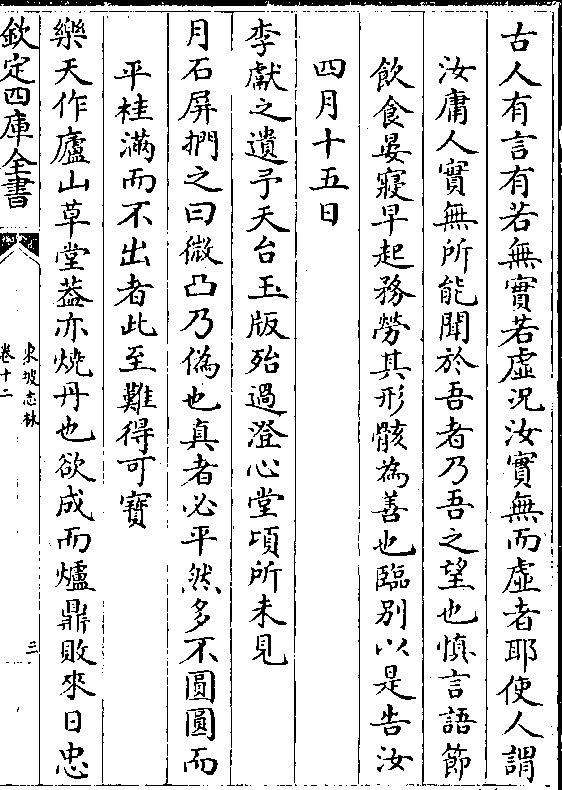 古人有言有若無實若虛況汝實無而虛者耶使人謂
汝庸人實無所能聞於吾者乃吾之望也慎言語節
飲食晏寢早起務勞其形骸為善也臨別以是告汝
四月十五日
李獻之遺予天台玉版殆過澄心堂頃所未見
月石屏捫之曰微凸乃偽也真者必平然多不圓圓而
平桂滿而不出者此至難得可寶
樂天作廬山草堂葢亦燒丹也欲成而爐鼎敗來日忠
欽定四庫全書
東坡志林
卷十二
三